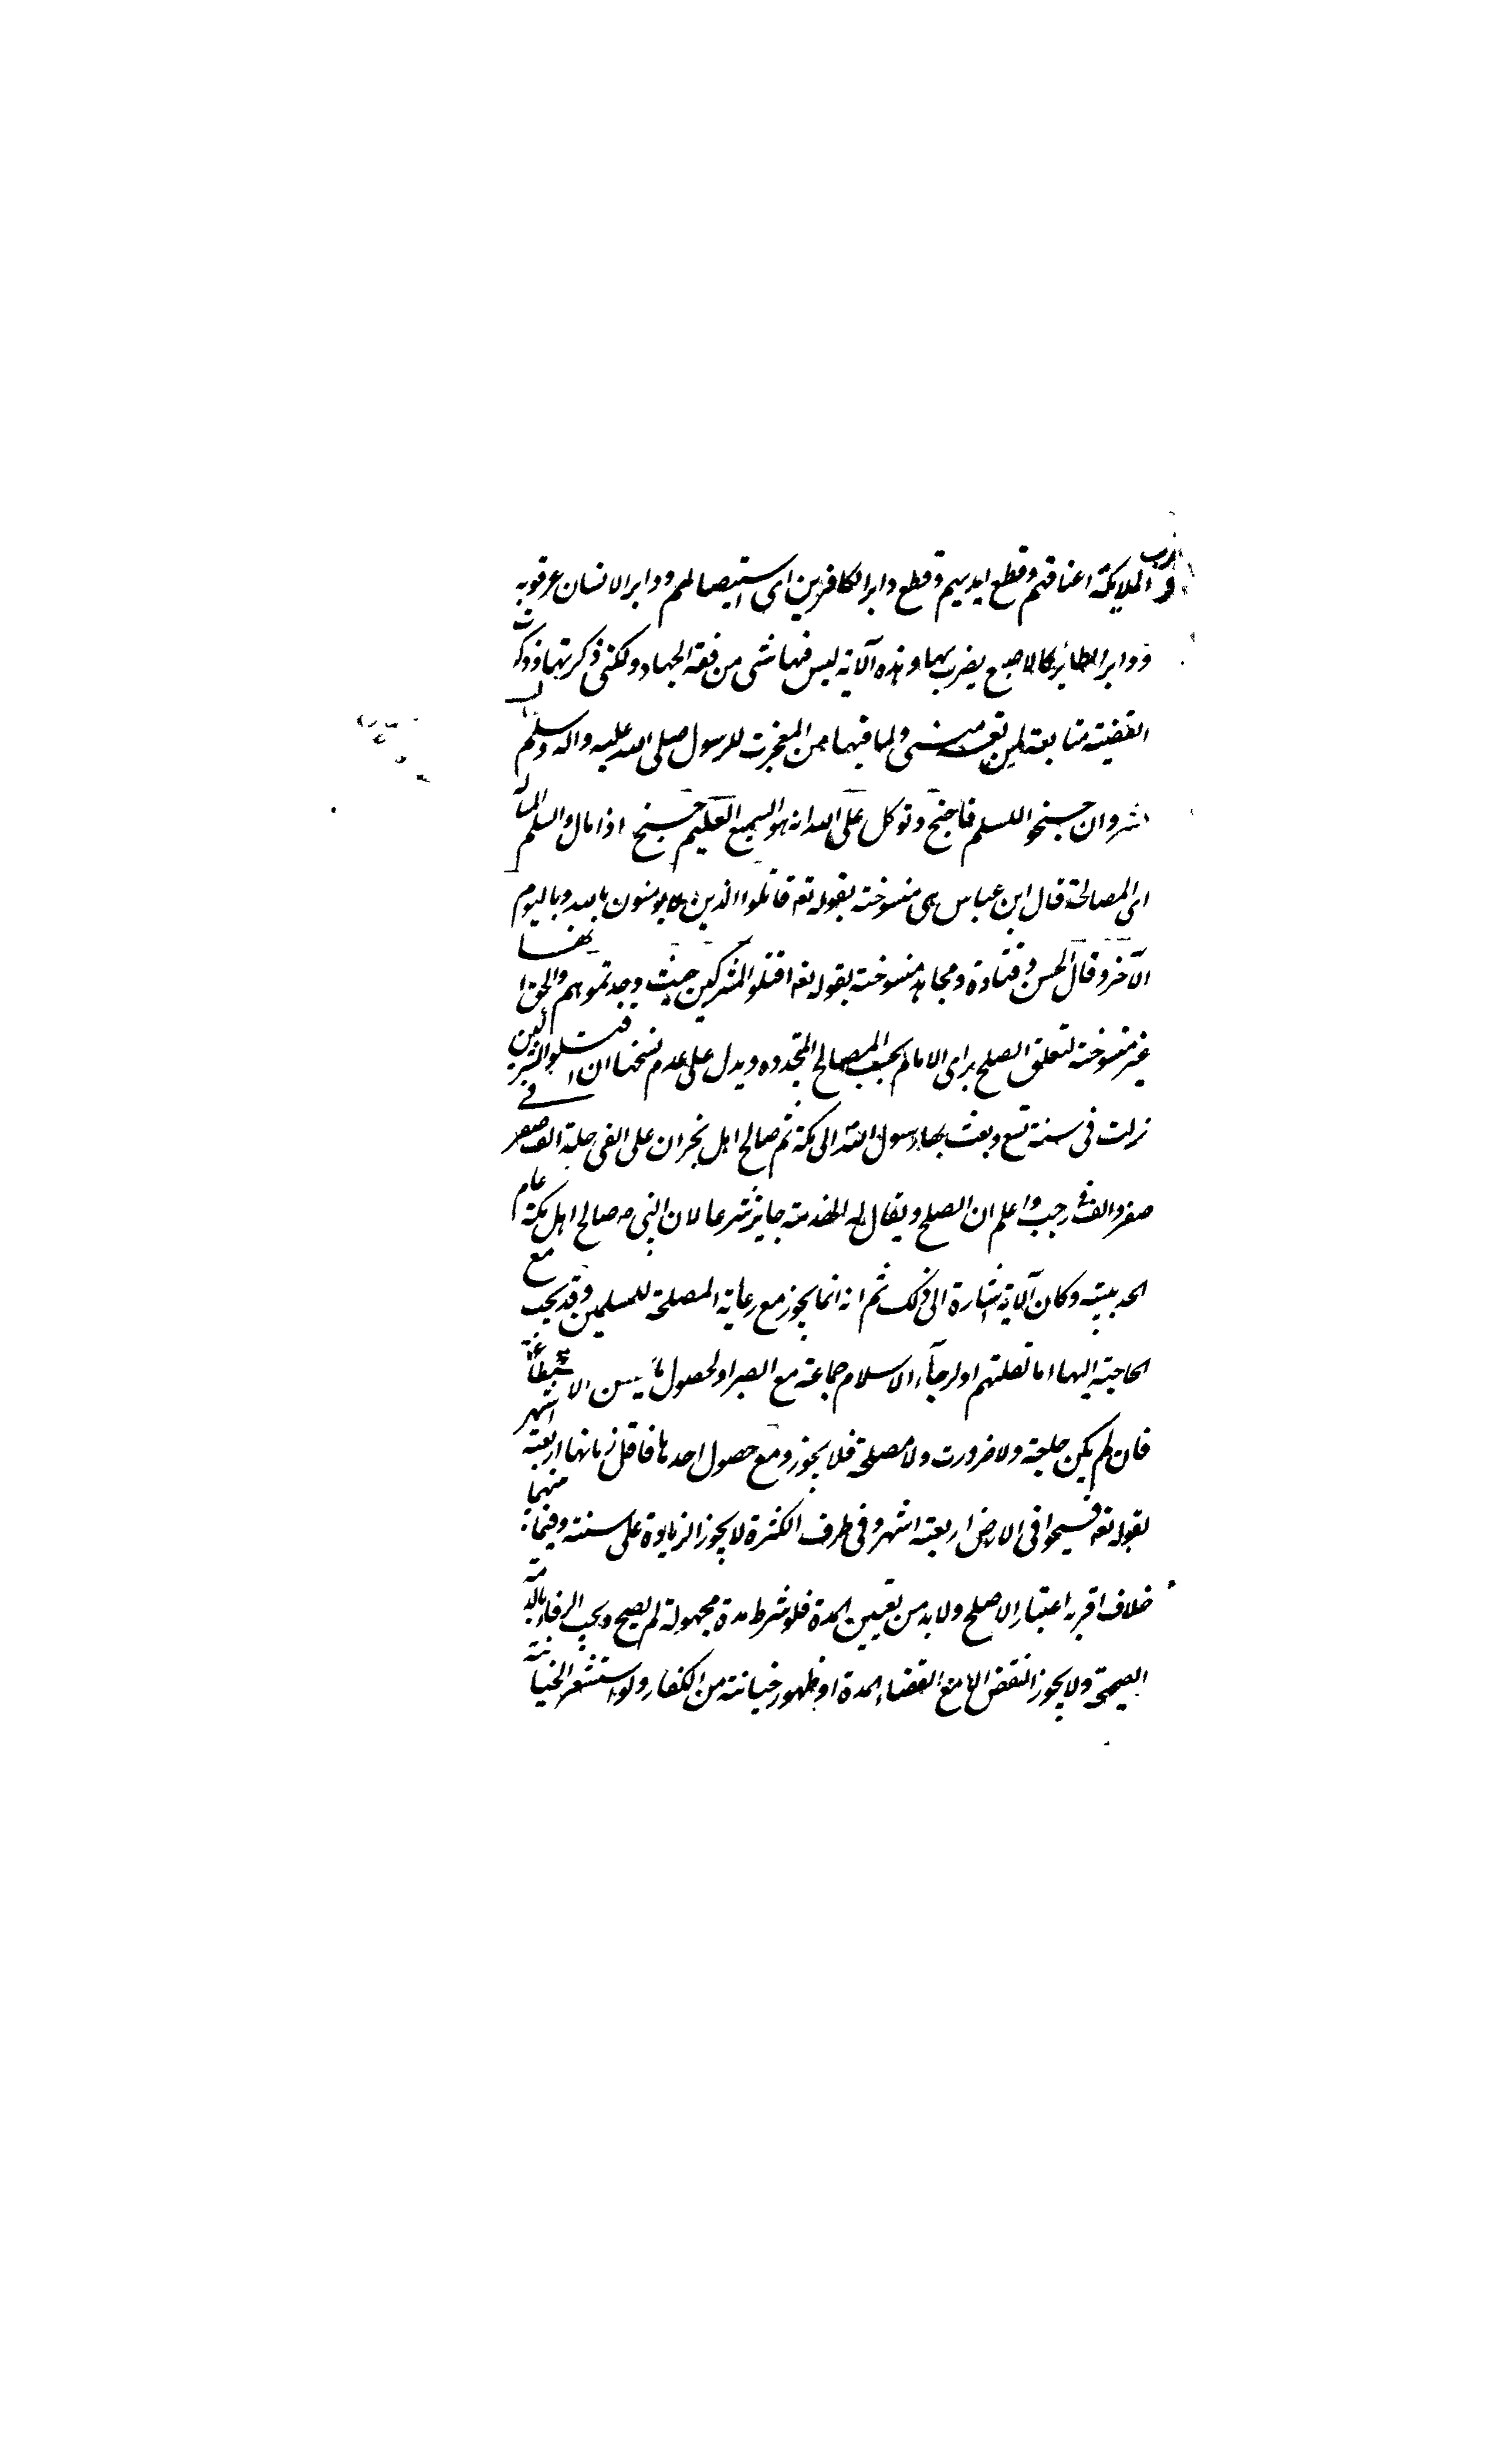 وضرب الملايكة اعناقهم وقطع ايديهم وقطع دابر الكافرين اى استيصالهم ودابر الانسان عرقوبه
ودابر الطاير كالاصبع يضرب بها وهذه الآية ليس فيها شى من فقه الجهاد ولكنى ذكرتها وذكرت
القضية متابعة لمن تقدمنى ولما فيها من المعجزت للرسول صلى الله عليه واله وسلم
وان جنحوا للسلم فاجنح وتوكل على الله انه هو السميع العليم جنح اذا مال والسلم المسالمة
اى المصالحة قال ابن عباس هى منسوخة بقوله تعه قاتلوا الذين لا يومنون بالله وباليوم
الآخر وقال الحسن وقتادة ومجاهد منسوخة بقوله تعه اقتلو المشركين حيث وجدتموهم والحق انها
غير منسوخة لتعلق الصلح براى الامام بحسب المصالح المتجدده ويدل على عدم نسخها ان اقتلوا المشركين
نزلت فى سنة تسع وبعث بها رسول الله الى مكة ثم صالح اهل نجران على الفى حلة الف فى صفر
صفر والف فى رجب واعلم ان الصلح ويقال له الهدنة جايز شرعا لان النبى ص صالح اهل مكة عام
الحديبية وكان الآية اشارة الى ذلك ثم انه انما يجوز مع رعاية المصلحة للمسلمين وقد يجب مع
الحاجة اليها اما لقلتهم او لرجآء الاسلام جماعة مع الصبر او لحصول ما
فان لم يكن حاجة ولا ضرورت ولا مصلحة فلا يجوز ومع حصول احدها فاقل زمانها اربعة اشهر
لقوله تعه فسيحوا فى الارض اربعة اشهر وفى طرف الكثرة لا يجوز الزيادة على سنة وفيما بينهما
خلاف اقربه اعتبار الاصلح ولا بد من تعيين المدة فلو شرط مدة مجهولة لم يصح ويجب الوفاء بالهدنة
الصحيحة ولا يجوز النقض الا مع انقضاء المدة او ظهور خيانة من الكفار ولو استشعر الخيانة